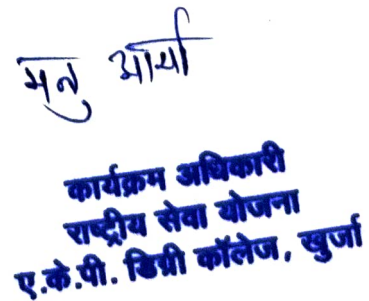 मनु आर्या
कार्यक्रम अधिकारी
राष्ट्रीय सेवा योजना
ए.के.पी. डिग्री कॉलेज, खुर्जा